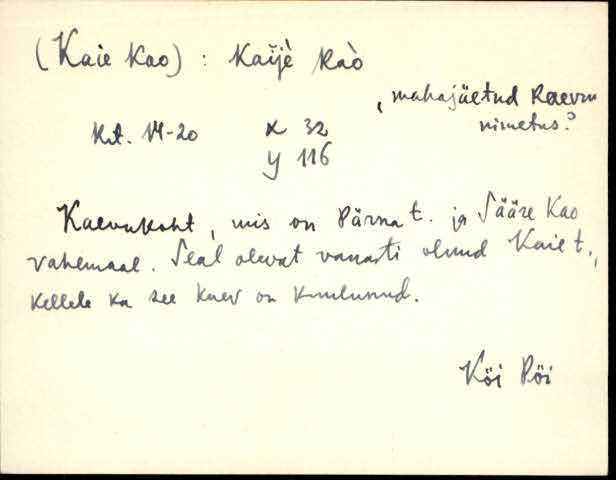 (Kaie Kao) : Kaijè kaò
, mahajäetud kaevu
nimetus?
Kt. VI-20 x 32
y 116
Kaevukoht, mis on Pärna t. ja Sääre Kao
vahemaal. Seal olevat vanasti olnud Kaie t.,
kellele ka see kaev on kuulunud.
Köi Pöi